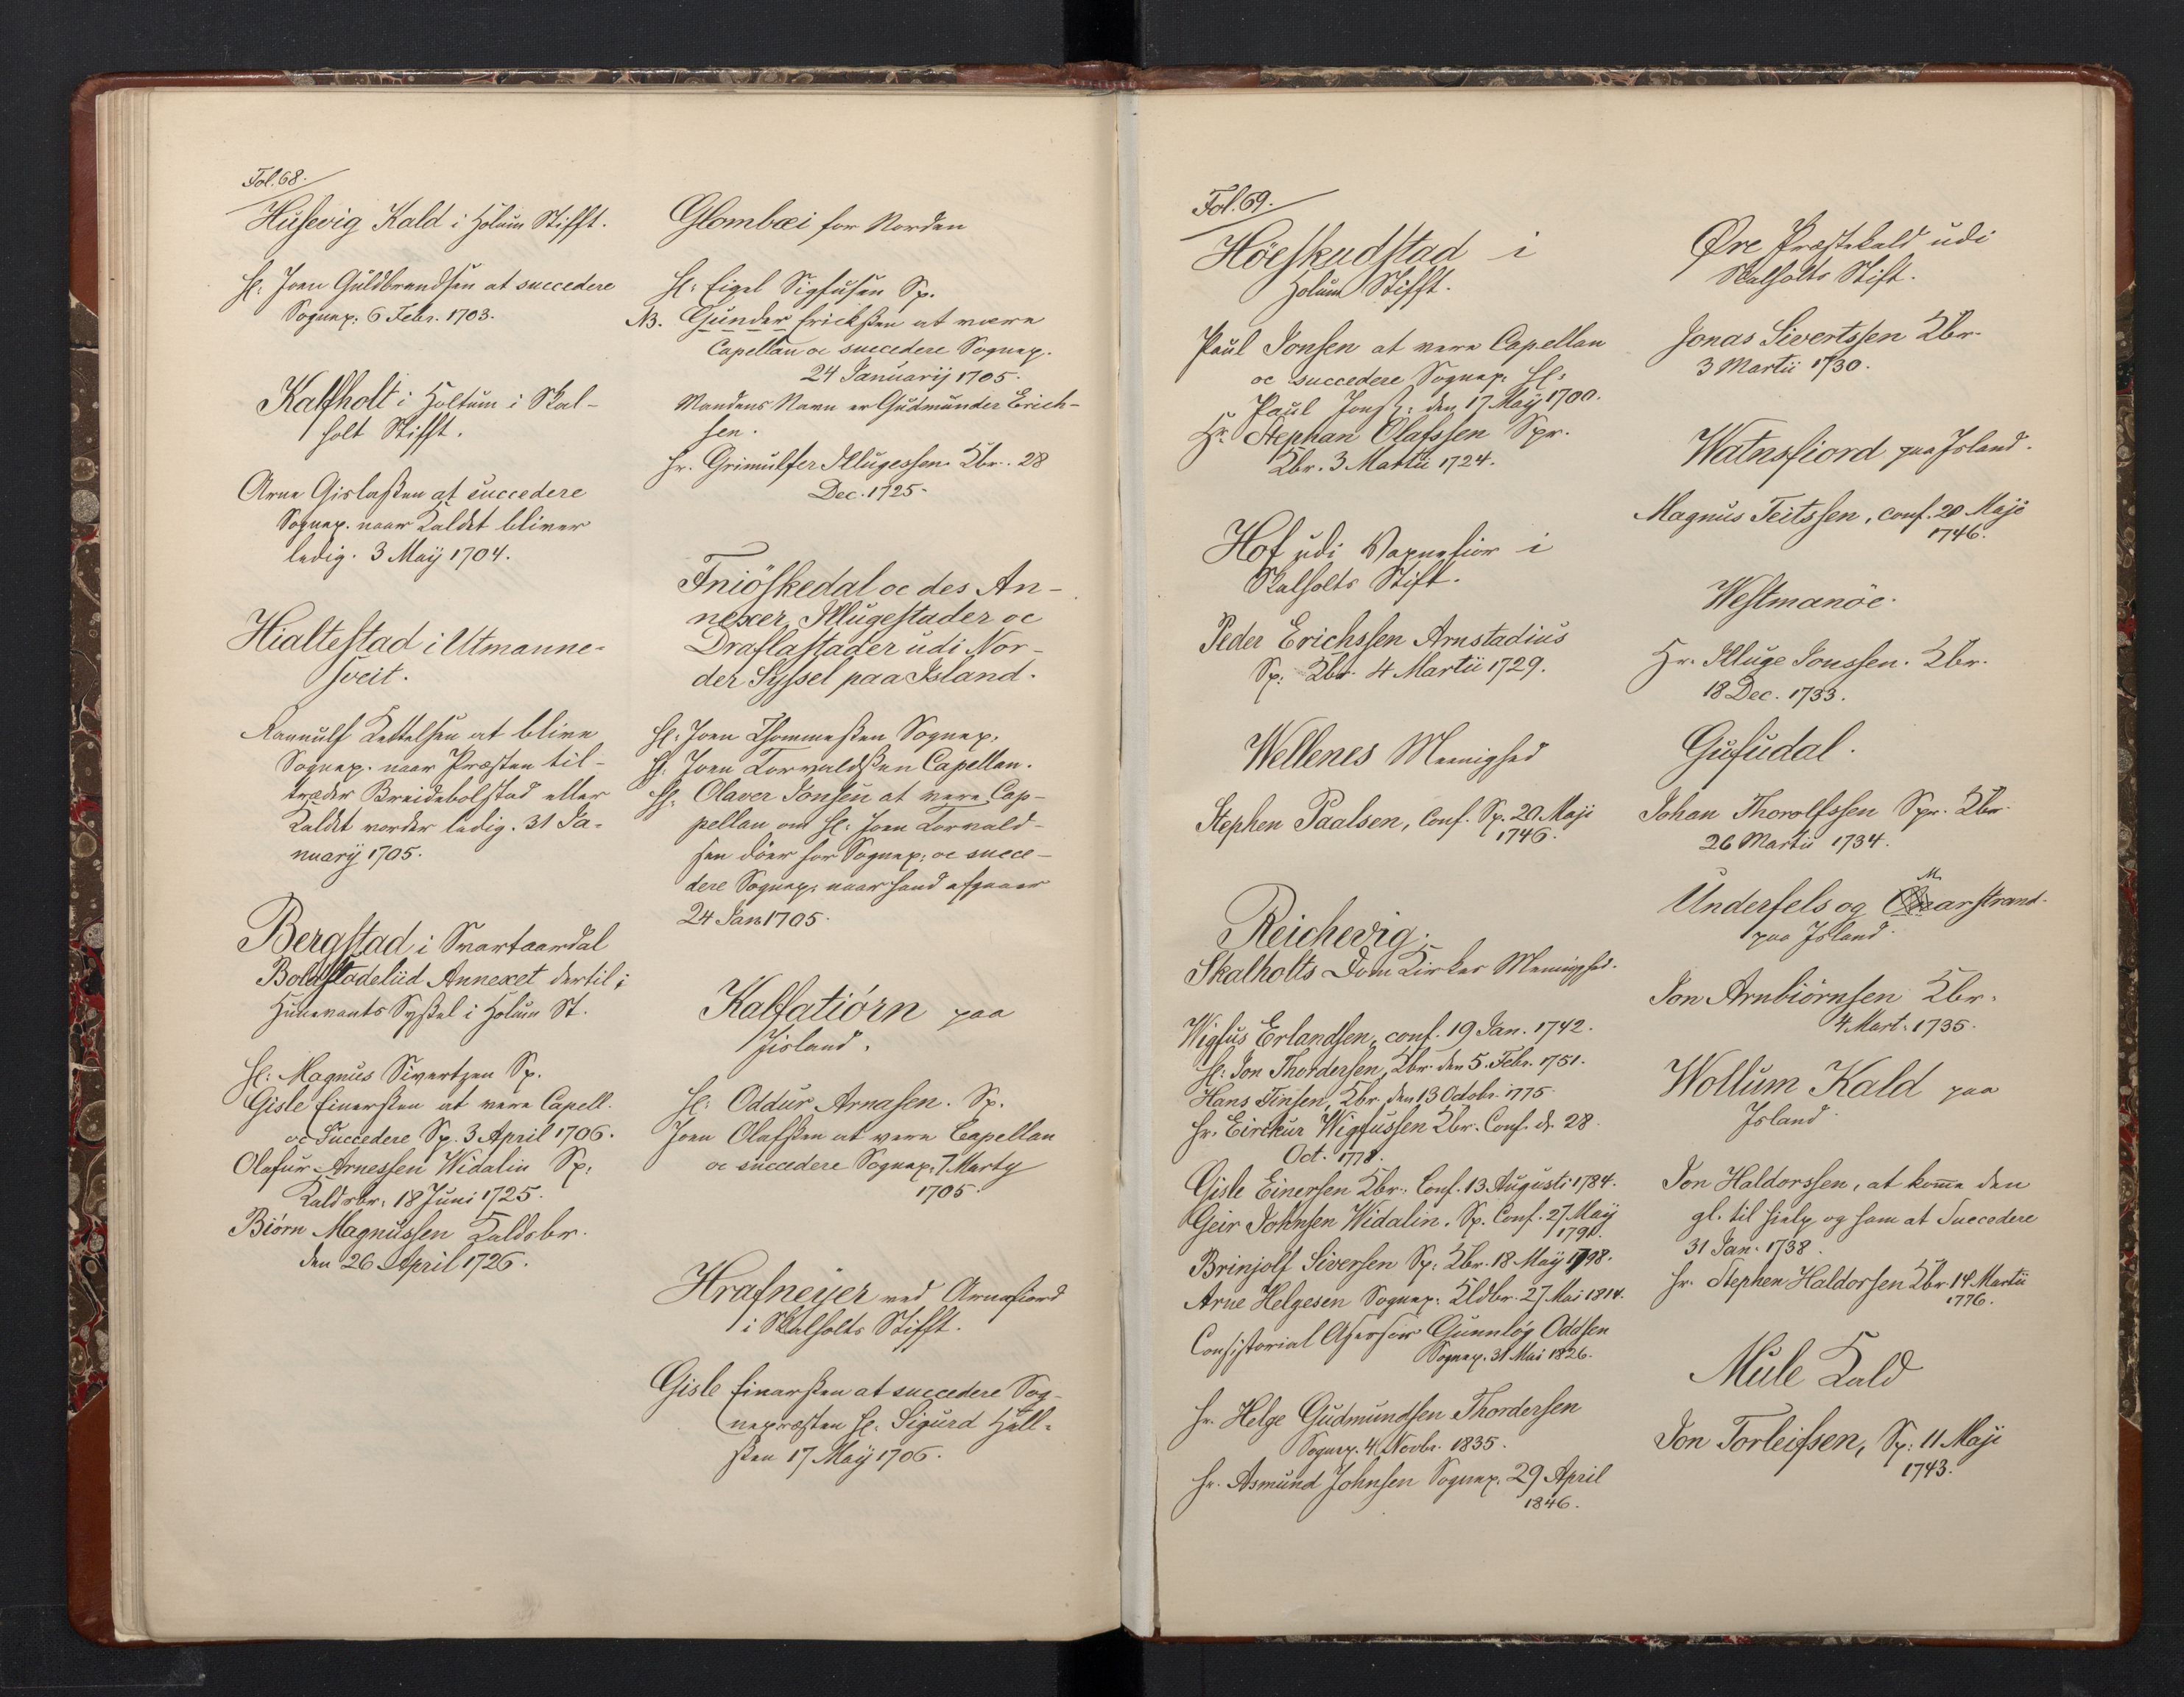 Fol. 68.
Husevig Kald i Holum Stifft.
Hr: Joen Guldbrandsen at succedere
Sognep: 6 Febr. 1703.
Kalfholt i Holtum i Skal-
holt Stifft.
Arne Gislasen at succedere
Sognep. naar Kaldet bliver
ledig. 3 Maij 1704.
Hialtestad i Utmanne-
sveit.
Rannulf Kettelsen at blive
Sognep. naar Præsten til-
træder Breidebolstad eller
Kaldet vorder ledig. 31 Ja-
nuarij 1705.
Bergstad i Svartaardal
Bolastadeliid Annexet dertil i
Hunevants Syssel i Holum St.
Hr: Magnus Sivertzen Sp.
Gisle Einersen at være Capell.
oc Succedere Sp. 3 April 1706.
Olafur Arnessen Widalin Sp:
Kaldsbr: 18 Juni 1725.
Biørn Magnussen Kaldsbr.
den 26 April 1726.
Glombæi for Norden
Hr: Eigel Sigfusen Sp.
NB. Gunder Ericksen at være
Capellan oc succedere Sognep.
24 Januarij 1705.
Mandens Navn er Gudmunder Erich-
sen.
Hr. Grimulfer Illugessen Kbr. 28
Dec. 1725.
Fniöskedal oc des An-
nexer, Illugestader oc
Draflastader udi Nor-
der Syssel paa Island.
Hr: Joen Thommesen Sognep.
Hr. Joen Torvaldsen Capellan.
Hr. Olaver Jonsen at være Cap-
pellan om Hr: Joen Torvald-
sen döer for Sognep: oc succe-
dere Sognep: naar hand afgaaer
24 Jan 1705.
Kalfatiörn paa
Iisland.
Hr: Oddur Arnasen. Sp.
Joen Olafsen at være Capellan
oc succedere Sognep: 7 Marty
1705.
Hrafneyer ved Arnafiord
i Skalholts Stifft.
Gisle Einarsen at succedere Sog-
nepræsten Hr: Sigurd Hall-
sen 17 Maij 1706.
Fol. 69.
Höeskudstad i
Holum Stifft.
Paul Jonsen at være Capellan
oc succedere Sognep: Hr:
Paul Jons: den 17 Maij 1700.
Hr. Stephan Olafssen Spr.
Kbr. 3 Martii 1724.
Hof udi Vapnefior i
Skalholts Stift.
Peder Erichssen Arnstadius
Sp: Kbr. 4 Martii 1729.
Wellenes Menighed
Stephen Paalsen, Conf. Sp. 20. Maji
1746.
Reichevig.
Skalholts Dom Kirkes Menighed.
Wigfus Erlandsen, conf. 19 Jan. 1742.
Hr: Jon Thordersen, Kbr. den 5. Febr. 1751.
Hans Finsen, Kbr. den 13 Octobr. 1775
Hr. Eirekur Wigfussen Kbr. Conf. d. 28
Oct. 1778.
Gisle Einersen Kbr. Conf. 13. Augusti 1784.
Geir Johnsen Widalin. Sp. Conf. 27. Maij
1791.
Brinjolf Siversen Sp: Kbr. 18 Maij 1798.
Arne Helgesen Sognep: Kldbr. 27 Mai 1814.
Consistorial Assessor Gunnlög Oddsen
Sognep. 31 Mai 1826.
Hr. Helge Gudmundsen Thordersen
Sognep. 4 Novbr. 1835.
Hr. Asmund Johnsen Sognep. 29 April
1846.
Øre Præstekald udi
Skalholts Stift.
Jonas Sivertssen Kbr.
3 Martii 1730.
Watnsfiord paa Island.
Magnus Teitssen, conf. 20 Maji
1746.
Westmanöe.
Hr. Illuge Jonssen. Kbr.
18 Dec. 1733.
Gufudal.
Johan Thorolfssen Spr. Kbr.
26 Martii 1734.
M
Underfels og arstrand.
paa Island.
Jon Arnbiörnsen Kbr.
4 Mart. 1735.
Wollum Kald paa
Island.
Jon Haldorssen, at kome den
gl. til hielp og ham at Succedere
31 Jan. 1738.
Hr. Stephen Haldorsen Kbr. 14 Martii
1776.
Mule Kald
Jon Torleifsen, Sp: 11 Maji
1743.